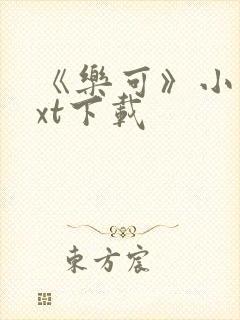 《樂可》小
xt下載
東方宸